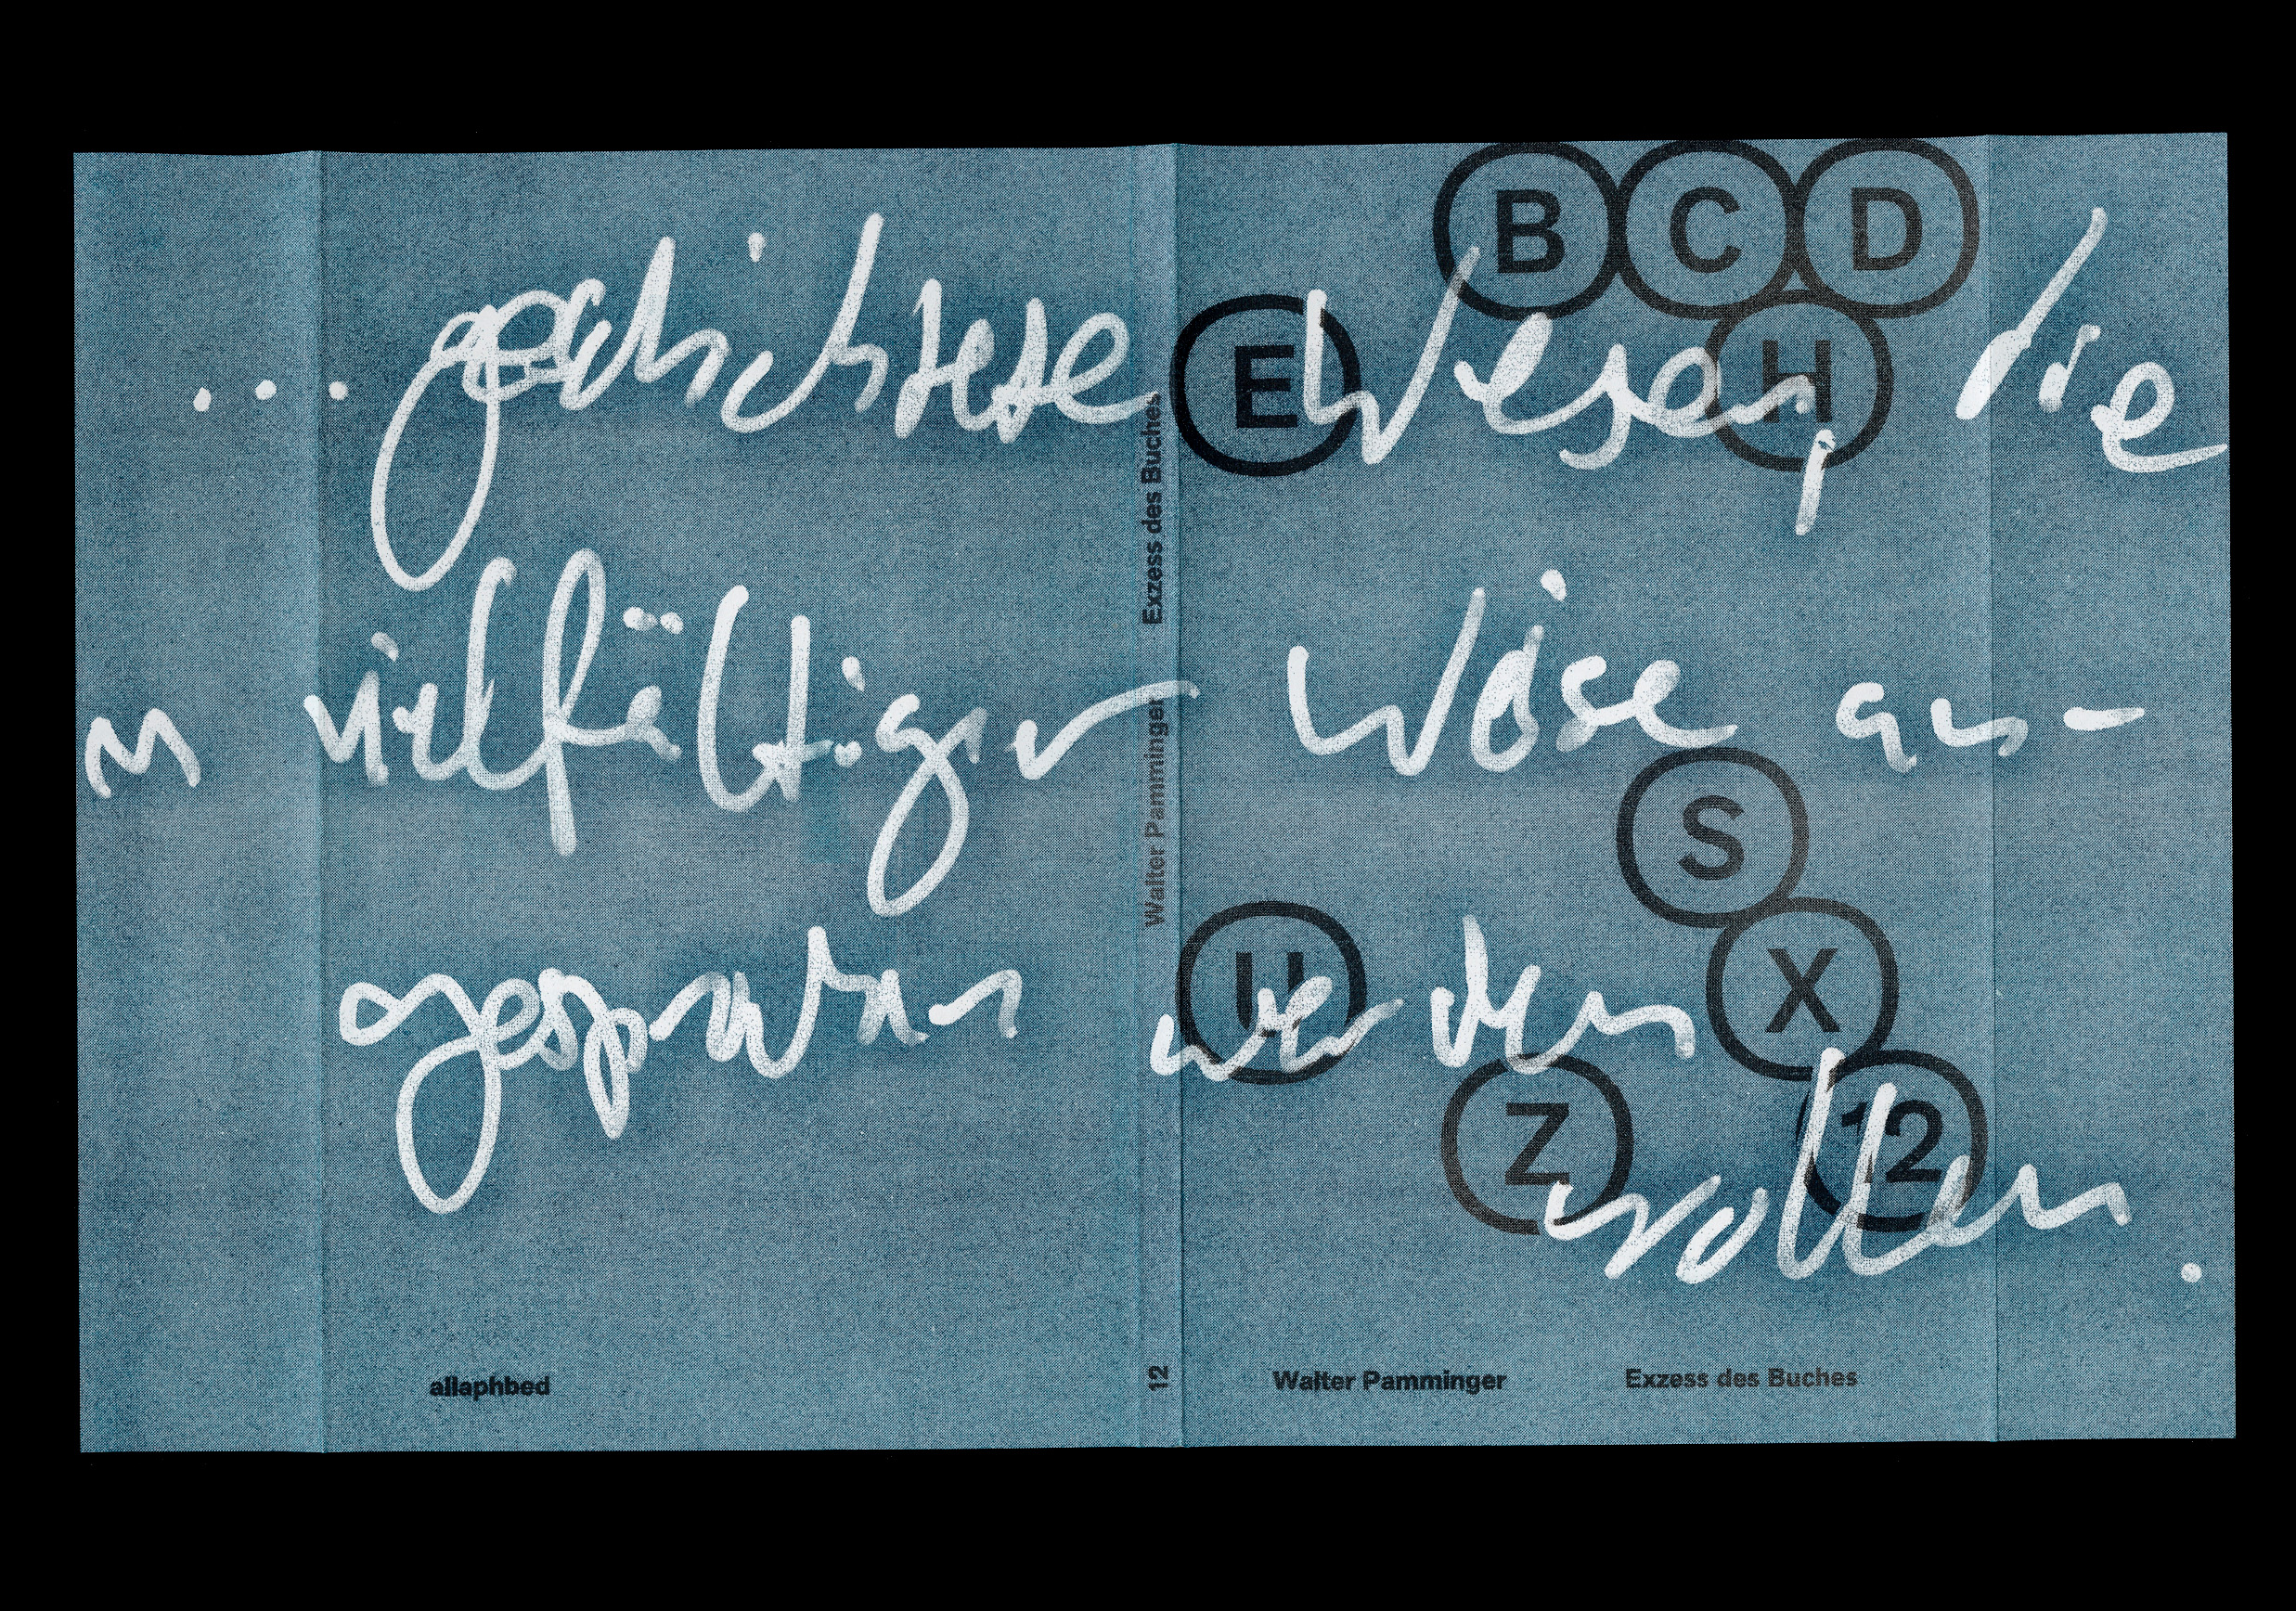 B C D
E H
... geschichtete Wesen, die
in vielfältiger Weise aus-
S
U X
gesprochen werden
Z 12
wollen.
Exzess des Buches
Walter Pamminger
12
allaphbed
Walter Pamminger Exzess des Buches